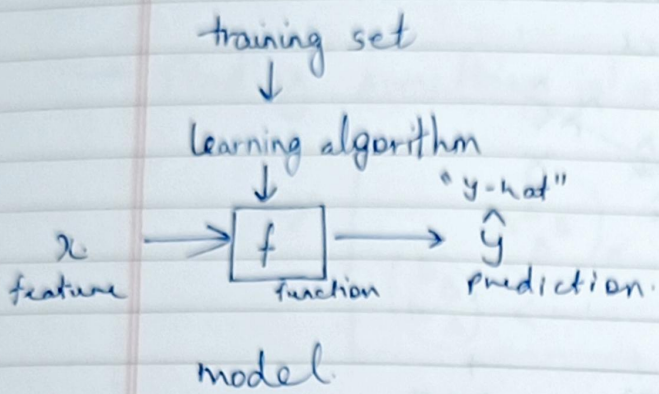 training set
↓
learning algorithm
↓
"y-hat"
x → f → ŷ
feature function prediction.
model.